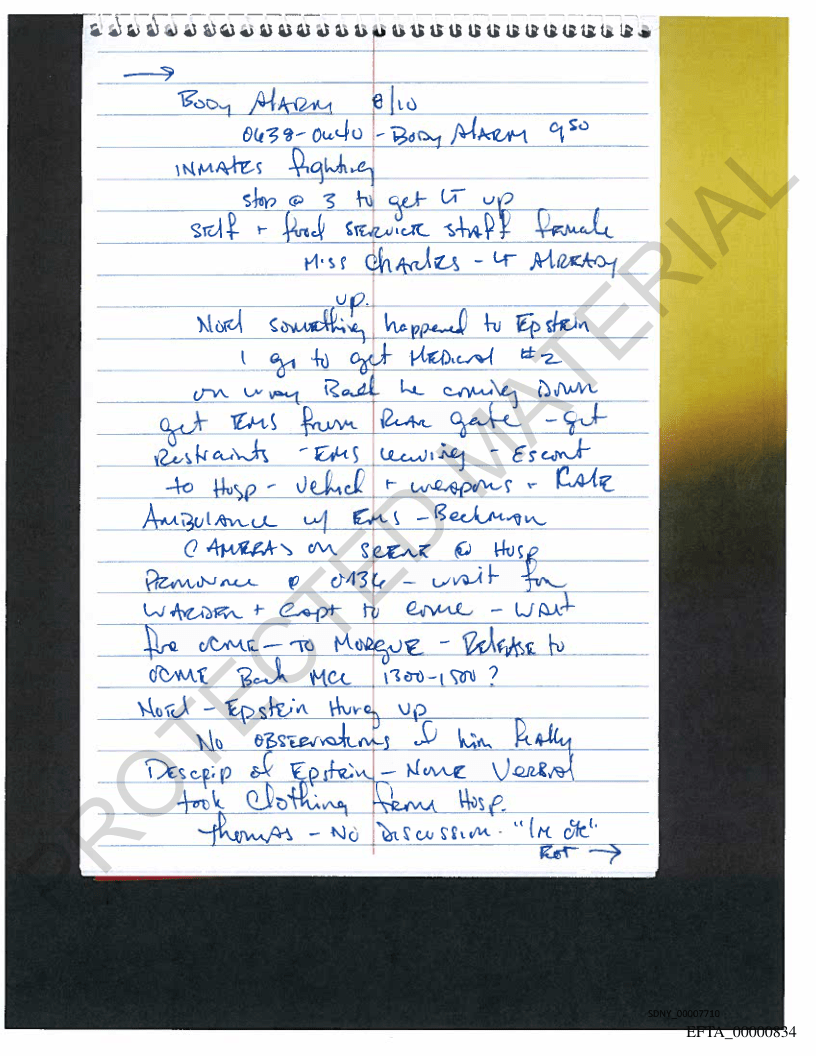 →
Body Alarm 8/10
0638-0640 - Body Alarm 9 So
INMATES fighting
stop @ 3 to get LT up
Self + food SERVICE staff female
Miss Charles - LT Already
up.
Noel something happened to Epstein
I go to get Medical #2
on way Back he coming Down
get EMS from Rear gate - get
Restraints - EMS - Escort
to Hosp - Vehicle + weapons +
Ambulance w/ EMS - Beekman
CAMERAS on SCENE @ Hosp
Pronounce @ - wait for
WARDEN + Capt to come - Wait
for OCME - TO MORGUE - Release to
OCME Back MCC 1300-1500?
Noel - Epstein Hung up
No OBSERvations of him Really
Descrip of Epstein - None Verbal
took Clothing from Hosp.
Thomas - No Discussion. "I'm ok".
→
PROTECTED MATERIAL
SDNY_00007710
EFTA_00000834